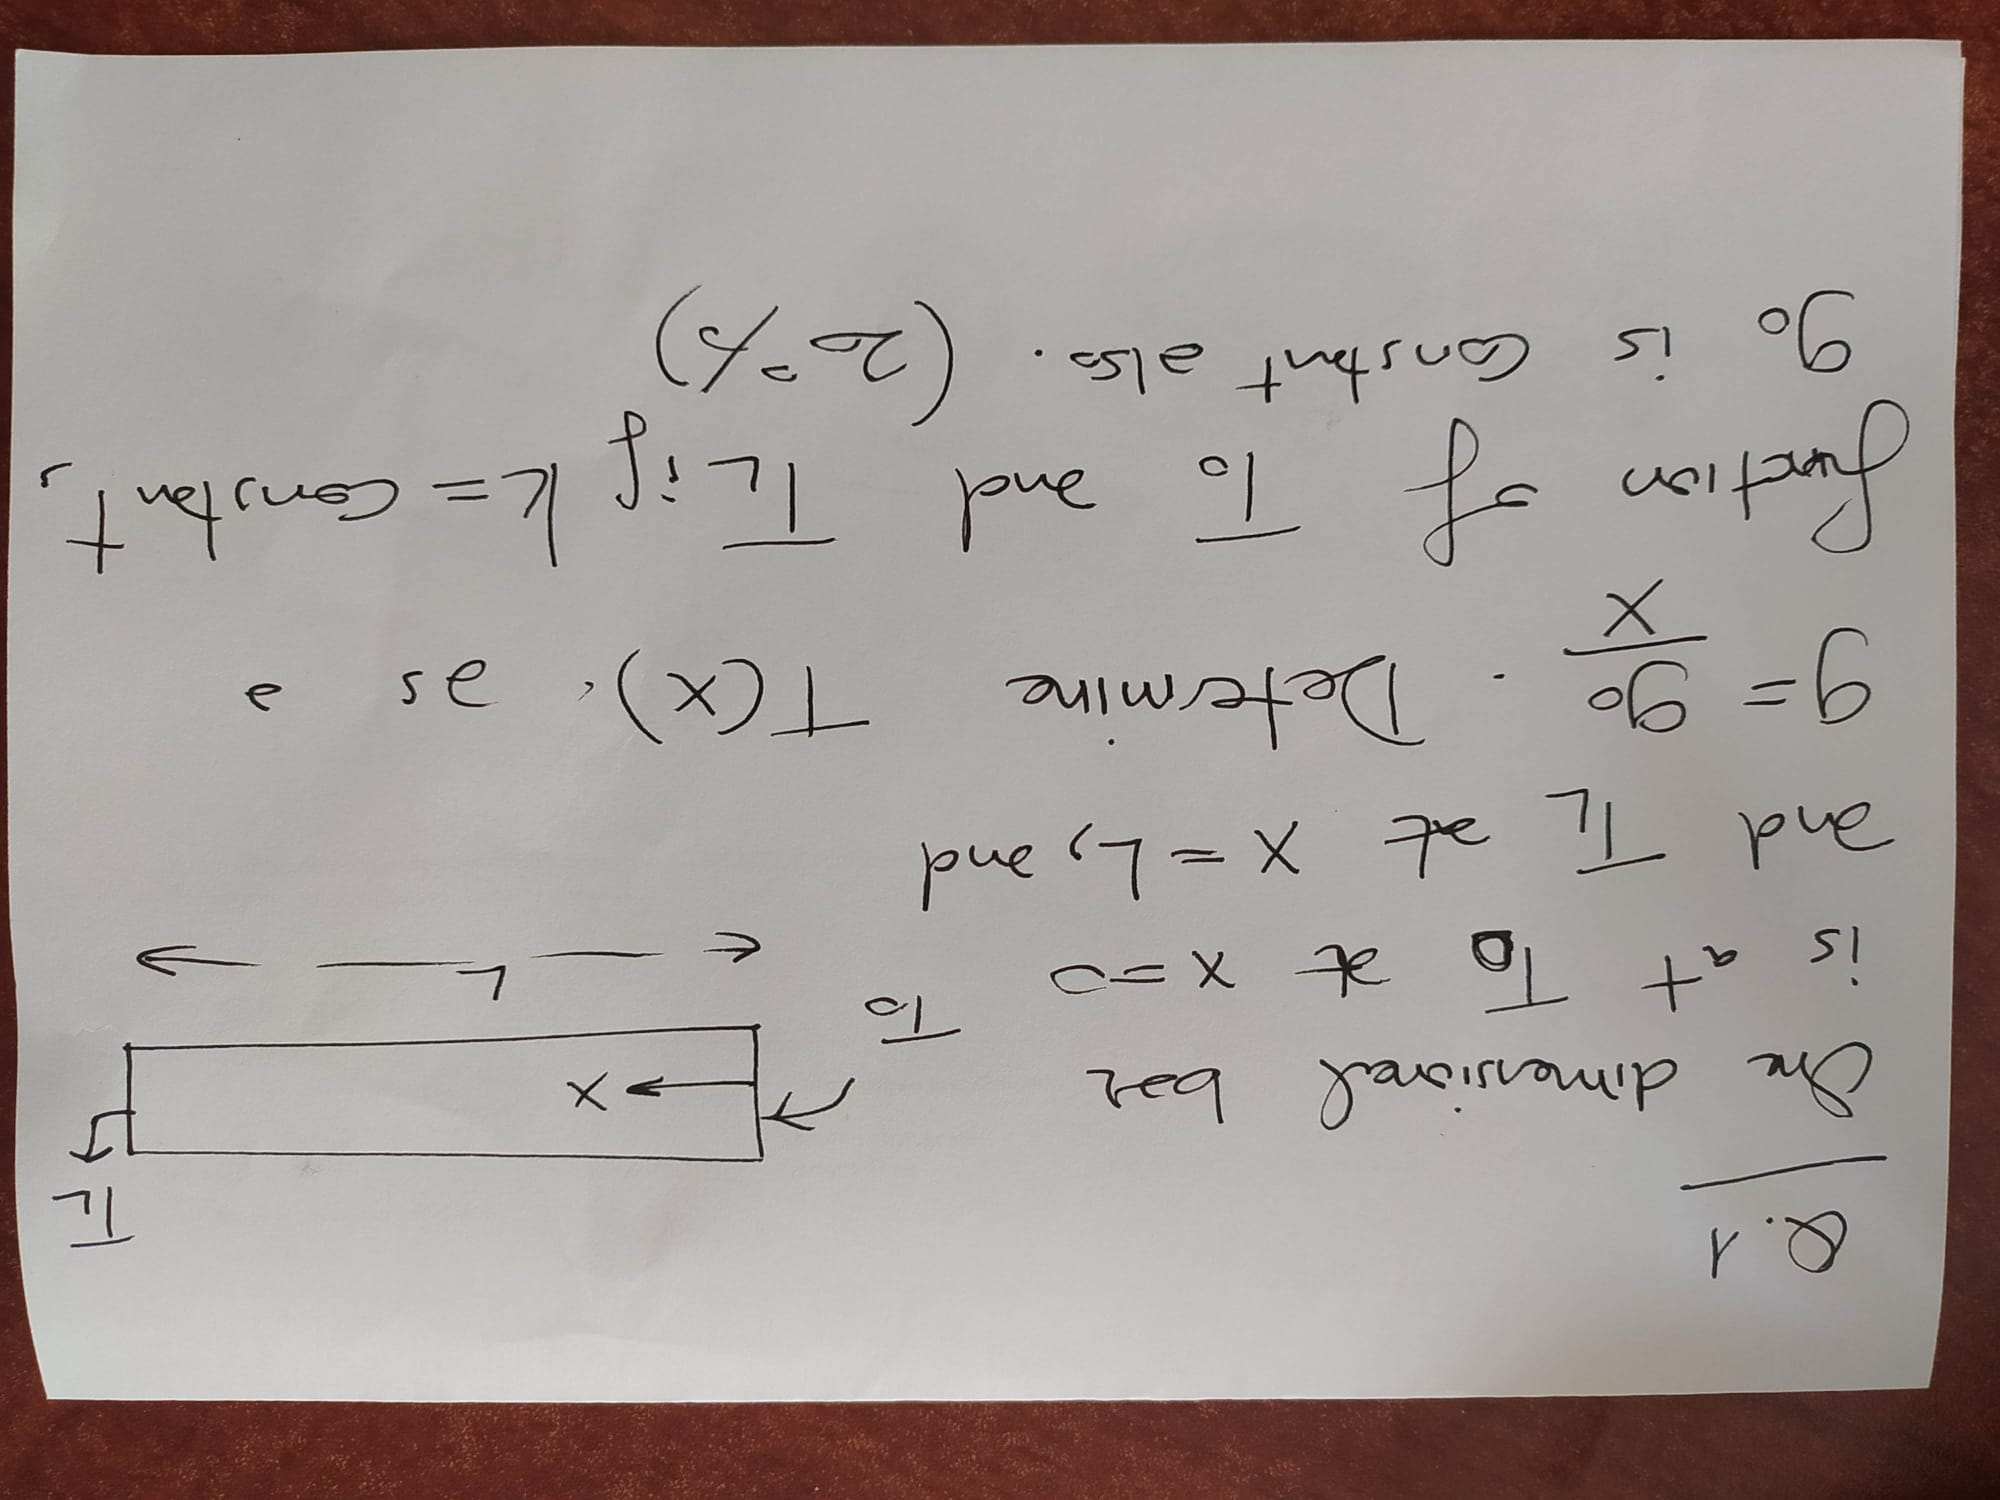 Q.1
One dimensional bar
is at T0 at x=0
and TL at x=L, and
g = g0/x . Determine T(x), as a
function of T0 and TL if k = constant,
g0 is constant also. (20%)
TL
x
T0
L